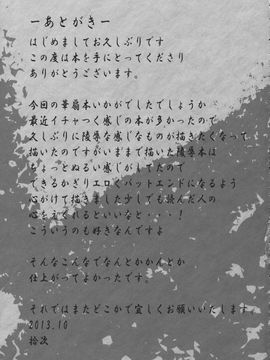 ーあとがきー
はじめましてお久しぶりです
この度は本を手にとってくださり
ありがとうございます。
今回の華扇本いかがでしたでしょうか
最近イチャつく感じの本が多かったので
久しぶりに陵辱な感じなものが描きたくなって
描いたのですがいままで描いた陵辱本は
ちょっとぬるい感じがしてたので
できるかぎりエロくバットエンドになるよう
心がけて描きました少しでも読んだ人の
心をえぐれるといいなと・・・！
こういうのも好きなんですよ
そんなこんなでなんとかかんとか
仕上がってよかったです。
それではまたどこかで宜しくお願いいたします。
2013.10
拾次